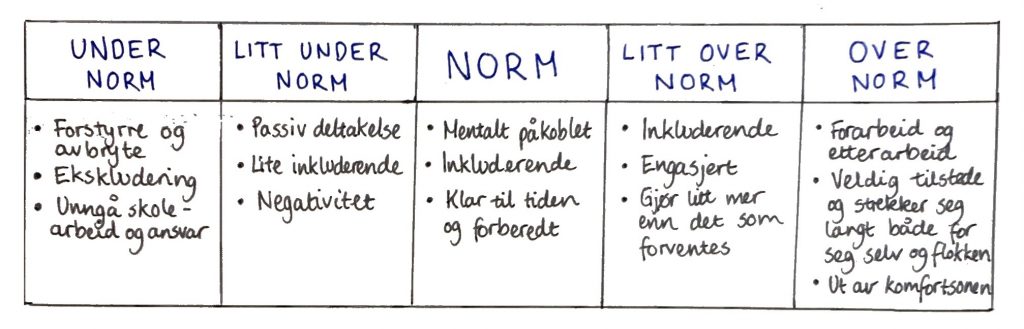 UNDER
NORM
LITT UNDER
NORM
NORM
LITT OVER
NORM
OVER
NORM
• Forstyrre og
avbryte
• Ekskludering
• Unngå skole-
arbeid og ansvar
• Passiv deltakelse
• Lite inkluderende
• Negativitet
• Mentalt påkoblet
• Inkluderende
• Klar til tiden
og forberedt
• Inkluderende
• Engasjert
• Gjør litt mer
enn det som
forventes
• Forarbeid og
etterarbeid
• Veldig tilstede
og strekker seg
langt både for
seg selv og flokken
• Ut av komfortsonen